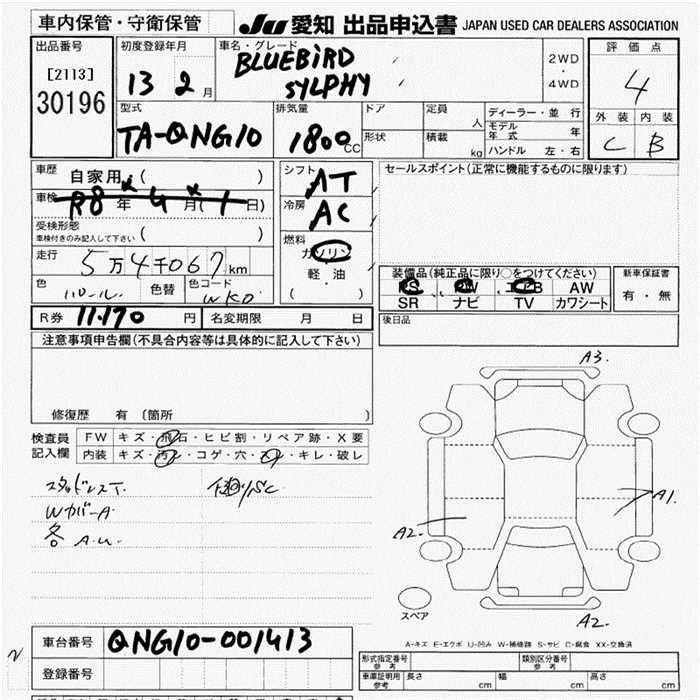 車内保管・守衛保管 JU 愛知 出品申込書 JAPAN USED CAR DEALERS ASSOCIATION
出品番号 初度登録年月 車名・グレード 評価点
[2113] BLUEBIRD 2WD
30196 13 2月 SYLPHY ・ 4WD 4
型式 排気量 ドア 定員 人 ディーラー・並行 外装 内装
TA-QNG10 1800 CC 形状 積載 kg モデル年式 年 C B
ハンドル 左・右
車歴 自家用( ) シフト AT セールスポイント(正常に機能するものに限ります)
車検 R8年 4月(1日) 冷房 AC
受検形態 ( )
車検付きのみ記入して下さい
燃料 ガソリン
走行 5万4千067km 軽・油
( )
装備品(純正品に限り○をつけてください) 新車保証書
PS PW エアB AW 有・無
SR ナビ TV カワシート
色 パール 色替 色コード WK0
R券 11.170 円 名変期限 月 日 後日品
注意事項申告欄(不具合内容等は具体的に記入して下さい)
修復歴 有 〔箇所 〕
検査員 FW キズ・飛石・ヒビ割・リペア跡・X要
記入欄 内装 キズ・汚レ・コゲ・穴・スレ・キレ・破レ
スタッドレスT.
WカバーA
各 A.U.
A3.
A1.
A2.
A2.
スペア
A-キズ E-エクボ U-凹み W-補修跡 S-サビ C-腐食 XX-交換済
車台番号 QNG10-001413
登録番号
形式指定番号 参考 類別区分番号 参考
車庫証明用 参考 長さ cm 幅 cm 高さ cm